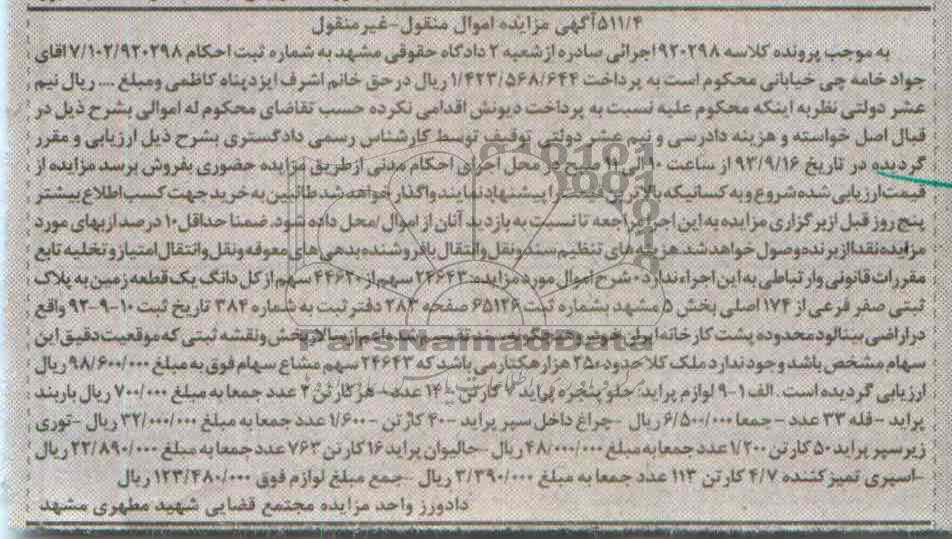 ۵۱۱/۴آگهی مزایده اموال منقول-غیرمنقول
به موجب پرونده کلاسه ۹۲۰۲۹۸اجرائی صادره ازشعبه ۲دادگاه حقوقی مشهد به شماره ثبت احکام ۷/۱۰۲/۹۲۰۲۹۸اقای
جواد خامه چی خیابانی محکوم است به پرداخت ۱/۴۲۳/۵۶۸/۶۴۴ ریال درحق خانم اشرف ایزدپناه کاظمی ومبلغ ... ریال نیم
عشر دولتی نظربه اینکه محکوم علیه نسبت به پرداخت دیونش اقدامی نکرده حسب تقاضای محکوم له اموالی بشرح ذیل در
قبال اصل خواسته و هزینه دادرسی و نیم عشر دولتی توقیف توسط کارشناس رسمی دادگستری بشرح ذیل ارزیابی و مقرر
گردیده در تاریخ ۹۳/۹/۱۶ از ساعت ۱۰ الی ۱۱ صبح در محل اجرای احکام مدنی ازطریق مزایده حضوری بفروش برسد مزایده از
قیمت ارزیابی شده شروع وبه کسانیکه بالاترین قیمت را پیشنهاد نمایند واگذار خواهد شد طالبین به خرید جهت کسب اطلاع بیشتر
پنج روز قبل ازبرگزاری مزایده به این اجرا مراجعه تا نسبت به بازدید آنان از اموال /محل داده شود. ضمنا حداقل ۱۰ درصد ازبهای مورد
مزایده نقدا ازبرنده وصول خواهد شد. هزینه های تنظیم سند ونقل وانتقال بافروشنده بدهی های معوقه ونقل وانتقال امتیاز و تخلیه تابع
مقررات قانونی وارتباطی به این اجراء ندارد*شرح اموال مورد مزایده: ۲۴۶۴۳ سهم از ۴۴۶۲۰ سهم از کل دانگ یک قطعه زمین به پلاک
ثبتی صفر فرعی از ۱۷۴ اصلی بخش ۵ مشهد بشماره ثبت ۶۵۱۲۶ صفحه ۲۸۳ دفتر ثبت به شماره ۳۸۴ تاریخ ثبت ۱۰-۹-۹۲ واقع
دراراضی بینالود محدوده پشت کارخانه ایران خودرو دیگر به سند تقسیم نامه های ارسالی بخش ونقشه ثبتی که موقعیت دقیق این
سهام مشخص باشد وجود ندارد ملک کلا حدود ۲۵۰ هزار هکتار می باشد که ۲۴۶۴۳ سهم مشاع سهام فوق به مبلغ ۹۸/۶۰۰/۰۰۰ ریال
ارزیابی گردیده است. الف ۱-۹ لوازم پراید: جلو پنجره پراید ۷ کارتن - ۱۴ عدد- هر کارتن ۲ عدد جمعا به مبلغ ۷۰۰/۰۰۰ ریال باربند
پراید - قله ۳۳ عدد - جمعا ۶/۵۰۰/۰۰۰ ریال - چراغ داخل سپر پراید -۴۰ کارتن - ۱/۶۰۰ عدد جمعا به مبلغ ۳۲/۰۰۰/۰۰۰ ریال -توری
زیر سپر پراید ۵۰ کارتن ۱/۲۰۰ عدد جمعا به مبلغ ۴۸/۰۰۰/۰۰۰ ریال -جالیوان پراید ۱۶ کارتن ۷۶۳ عدد جمعا به مبلغ ۲۲/۸۹۰/۰۰۰ ریال
-اسپری تمیز کننده ۴/۷ کارتن ۱۱۳ عدد جمعا به مبلغ ۳/۳۹۰/۰۰۰ ریال -جمع مبلغ لوازم فوق ۱۲۳/۴۸۰/۰۰۰ ریال
دادورز واحد مزایده مجتمع قضایی شهید مطهری مشهد
ParsNamadData